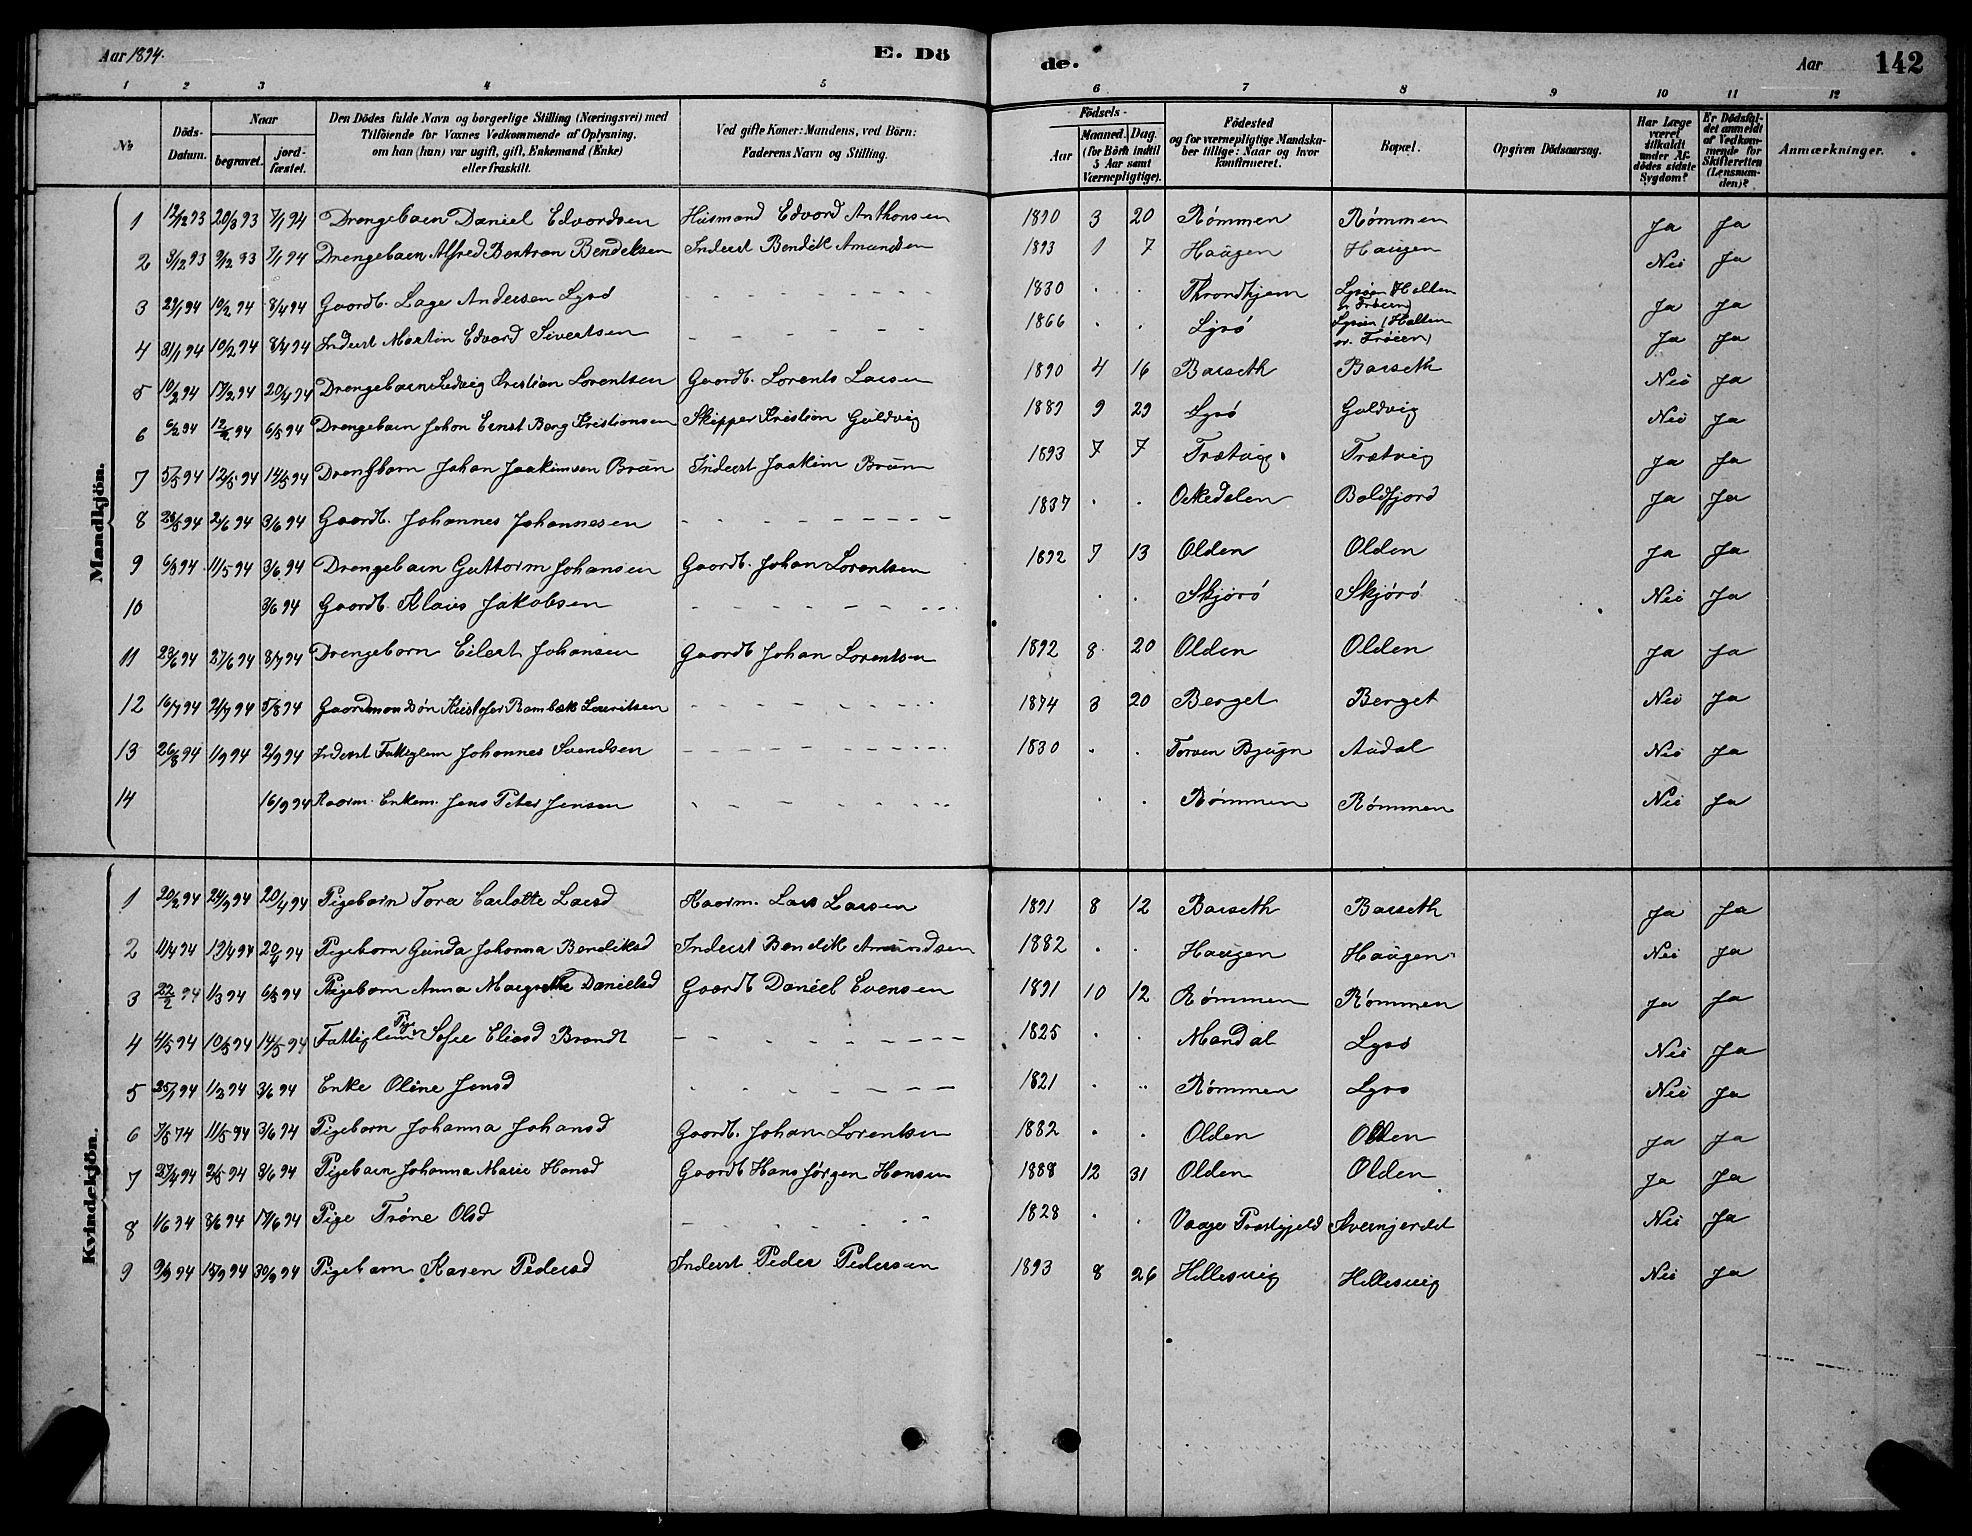 Aar 1894. E. Dö de. Aar 142
1 2 3 4 5 6 7 8 9 10 11 12
№ Döds-Datum. Naar begravet. jordfæstet. Den Dödes fulde Navn og borgerlige Stilling (Næringsvei) med Tilföiende for Voxnes Vedkommende af Oplysning, om han (hun) var ugift, gift, Enkemand (Enke) eller fraskilt. Ved gifte Koner: Mandens, ved Börn: Faderens Navn og Stilling. Födsels- Aar Maaned. Dag. (for Börn indtil 5 Aar samt Værnepligtige). Födested og for værnepligtige Mandskaber tillige: Naar og hvor konfirmeret. Bopæl. Opgiven Dödsaarsag. Har Læge været tilkaldt under Afdödes sidste Sygdom? Er Dödsfaldet anmeldt af Vedkommende for Skifteretten (Lensmanden)? Anmærkninger.
Mandkjön.
1 12/12 93 20/3 93 7/1 94 Drengebarn Daniel Edvardsen Husmand Edvard Anthonsen 1890 3 20 Rømmen Rømmen Ja Ja
2 3/12 93 9/12 93 7/1 94 Drengebarn Alfred Bertran Bendiksen Inderst Bendik Amundsen 1893 1 7 Haugen Haugen Nei Ja
3 29/1 94 10/2 94 8/4 94 Gaardb. Lage Andersen Lysø 1830 Throndhjem Lysøen (Halten v. Frøien) Ja Ja
4 31/1 94 10/2 94 8/4 94 Inderst Martin Edvard Sivertsen 1866 Lysø Lysøen (Halten v. Frøien) Ja Ja
5 10/2 94 17/2 94 20/4 94 Drengebarn Ludvig Kristian Lorentsen Gaardb. Lorents Larsen 1890 4 16 Barseth Barseth Nei Ja
6 6/2 94 12/2 94 6/5 94 Drengebarn Johan Ernst Berg Kristiansen Skipper Kristian Guldvig 1889 9 29 Lysø Guldvig Nei Ja
7 5/5 94 12/5 94 14/5 94 Drengbarn Johan Joakimsen Brun Inderst Joakim Brun 1893 7 7 Trætvig Trætvig Ja Ja
8 28/5 94 2/6 94 3/6 94 Gaardb. Johannes Johannesen 1837 Orkedalen Boldfjord Ja Ja
9 6/5 94 11/5 94 3/6 94 Drengebarn Guttorm Johansen Gaardb. Johan Lorentsen 1892 7 13 Olden Olden Ja Ja
10 3/6 94 Gaardb. Klaus Jakobsen Skjørø Skjørø Nei Ja
11 23/6 94 27/6 94 8/7 94 Drengebarn Eilert Johansen Gaardb Johan Lorentsen 1892 8 20 Olden Olden Ja Ja
12 16/7 94 21/7 94 5/8 94 Gaardmandsøn Kristofer Rambæk Lauritsen 1874 3 20 Berget Berget Nei Ja
13 26/8 94 1/9 94 2/9 94 Inderst Fattiglem Johannes Svendsen 1830 Torven Bjugn Audal Nei Ja
14 16/9 94 Kaarm. Enkem. Jens Peter Jensen Rømmen Rømmen Nei Ja
Kvindekjön.
1 20/2 94 24/2 94 20/4 94 Pigebarn Tora Carlotte Larsd Kaarm. Lars Larsen 1891 8 12 Barseth Barseth Ja Ja
2 11/4 94 19/4 94 20/4 94 Pigebarn Gunda Johanna Bendiksd Inderst Bendik Amundsen 1882 Haugen Haugen Nei Ja
3 22/2 94 1/3 94 6/5 94 Pigebarn Anna Margrethe Danielsd Gaardb Daniel Evensen 1891 10 12 Rømmen Rømmen Ja Ja
4 4/5 94 10/5 94 14/5 94 Fattiglem Pige Sofie Eliasd Brandt 1825 Mandal Lysø Nei Ja
5 25/1 94 1/2 94 3/6 94 Enke Oline Jensd 1821 Rømmen Lysø Nei Ja
6 7/5 94 11/5 94 3/6 94 Pigebarn Johanna Johansd Gaardb. Johan Lorentsen 1882 Olden Olden Ja Ja
7 27/4 94 2/5 94 3/6 94 Pigebarn Johanna Marie Hansd Gaardb Hans Jørgen Hansen 1888 12 31 Olden Olden Ja Ja
8 1/6 94 8/6 94 17/6 94 Pige Trøne Olsd 1828 Vaage Præstgjeld Nei Ja
9 9/9 94 15/9 94 30/9 94 Pigebarn Karen Pedersd Inderst Peder Pedersen 1893 8 26 Hellesvig Hellesvig Nei Ja